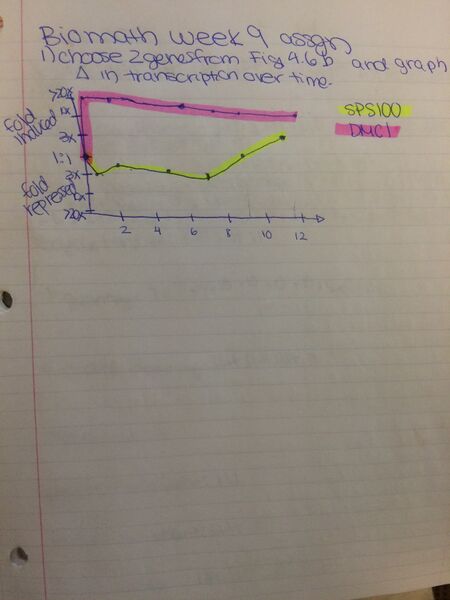 Biomath week 9 assgn
1) choose 2 genes from Fig 4.6 b and graph
Δ in transcription over time.
>20x
1x
3x
1:1
3x
>20x
fold induced
fold repressed
SPS100
DMC1
2 4 6 8 10 12